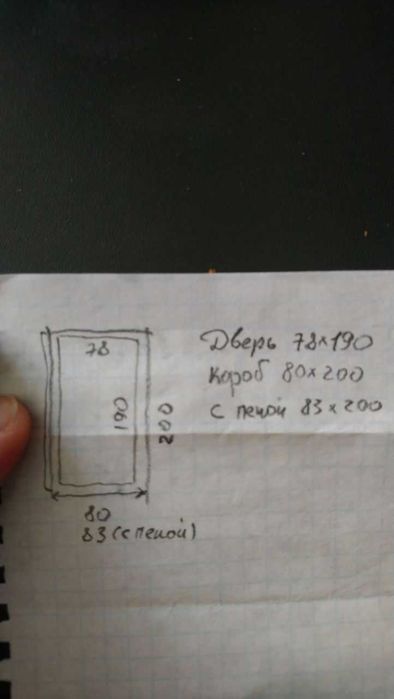 78
190
200
80
83 (с пеной)
Дверь 78×190
Короб 80×200
с пеной 83×200